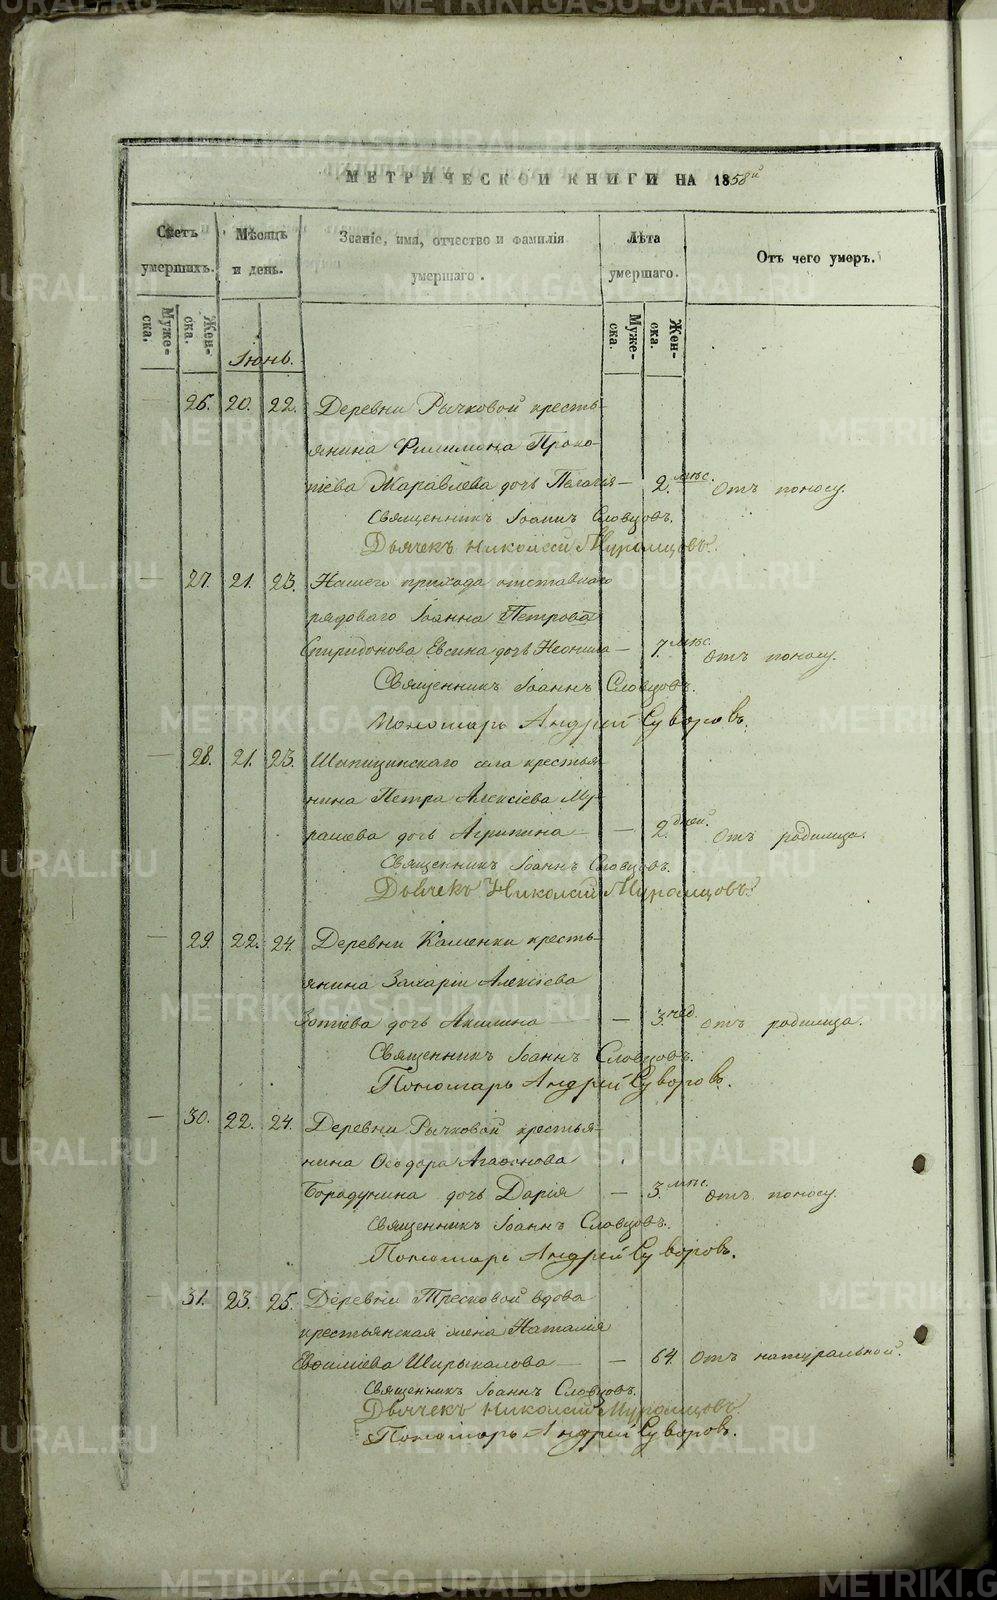 МЕТРИЧЕСКОЙ КНИГИ НА 1858й
Счетъ умершихъ.
Мѣсяцъ и день.
Званіе, имя, отчество и фамилія умершаго.
Лѣта умершаго.
Отъ чего умеръ.
Муже-ска.
Жен-ска.
Муже-ска.
Жен-ска.
Іюнь.
— 26. 20. 22. Деревни Рычковой кресть-
янина Филимона Проко-
піева Жаравлева дочь Пелагія — 2. мѣс. Отъ поносу.
Священникъ Іоаннъ Словцовъ.
Дьячекъ Николай Муромцовъ.
— 27. 21. 23. Нашего прихода отставнаго
рядоваго Іоанна Петрова
Спиридонова Евсина дочь Неонила — 7. мѣс. Отъ поносу.
Священникъ Іоаннъ Словцовъ.
Пономарь Андрей Суворовъ.
— 28. 21. 23. Шипицинскаго села крестья-
нина Петра Алексіева Му-
рашева дочь Агрипина — — 2. дней. Отъ родимца.
Священникъ Іоаннъ Словцовъ.
Дьячекъ Николай Муромцовъ.
— 29. 22. 24. Деревни Каменки кресть-
янина Захаріи Алексіева
Зотіева дочь Акилина — — 3. нед. Отъ родимца.
Священникъ Іоаннъ Словцовъ.
Пономарь Андрей Суворовъ.
— 30. 22. 24. Деревни Рычковой крестья-
нина Ѳеодора Агаѳонова
Бородулина дочь Дарія — 3. мѣс. Отъ поносу.
Священникъ Іоаннъ Словцовъ.
Пономарь Андрей Суворовъ.
— 31. 23. 25. Деревни Тресковой вдова
крестьянская жена Наталія
Евѳиміева Ширыкалова — — 64. Отъ натуральной.
Священникъ Іоаннъ Словцовъ.
Дьячекъ Николай Муромцовъ
Пономарь Андрей Суворовъ.
METRIKI.GASO-URAL.RU